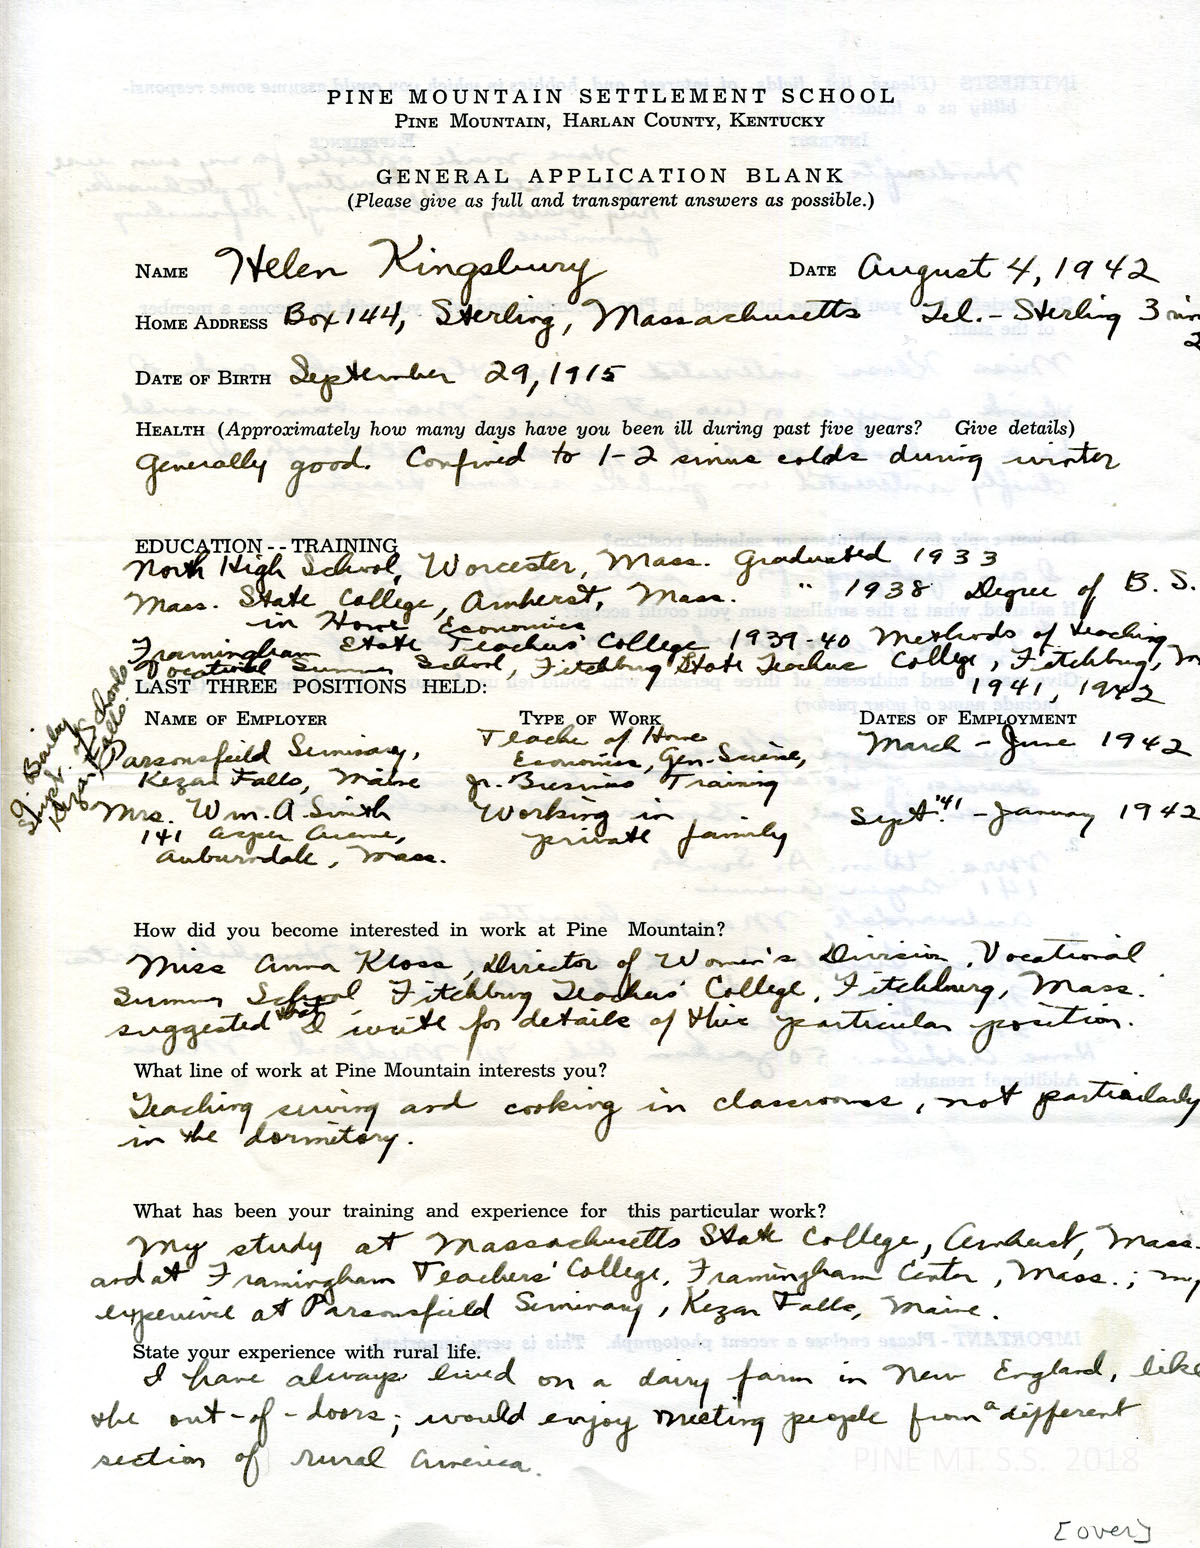 PINE MOUNTAIN SETTLEMENT SCHOOL
PINE MOUNTAIN, HARLAN COUNTY, KENTUCKY
GENERAL APPLICATION BLANK
(Please give as full and transparent answers as possible.)
NAME Helen Kingsbury DATE August 4, 1942
HOME ADDRESS Box 144, Sterling, Massachusetts Tel. - Sterling 3
2
DATE OF BIRTH September 29, 1915
HEALTH (Approximately how many days have you been ill during past five years? Give details)
Generally good. Confined to 1-2 sinus colds during winter
EDUCATION -- TRAINING
North High School, Worcester, Mass. Graduated 1933
Mass. State College, Amherst, Mass. " 1938 Degree of B. S.
in Home Economics
Framingham State Teachers' College 1939-40 Methods of teaching
Vocational Summer School, Fitchburg State Teachers College, Fitchburg,
1941, 1942
LAST THREE POSITIONS HELD:
NAME OF EMPLOYER TYPE OF WORK DATES OF EMPLOYMENT
Supt. of Schools
Kezar Falls
Parsonsfield Seminary, Teacher of Home March - June 1942
Kezar Falls, Maine Economics, Gen. Science,
Jr. Business Training
Mrs. Wm. A. Smith Working in Sept. '41 - January 1942
141 Avenue, private family
Auburndale, Mass.
How did you become interested in work at Pine Mountain?
Miss Anna Kloss, Director of Women's Division, Vocational
Summer School, Fitchburg Teachers' College, Fitchburg, Mass.
suggested that I write for details of this particular position.
What line of work at Pine Mountain interests you?
Teaching sewing and cooking in classrooms, not particularly
in the dormitory.
What has been your training and experience for this particular work?
My study at Massachusetts State College, Amherst, Mass.
and at Framingham Teachers' College, Framingham Center, Mass.; my
experience at Parsonsfield Seminary, Kezar Falls, Maine.
State your experience with rural life.
I have always lived on a dairy farm in New England, like
the out-of-doors; would enjoy meeting people from a different
section of rural America.
PINE MT. S.S. 2018
[over]